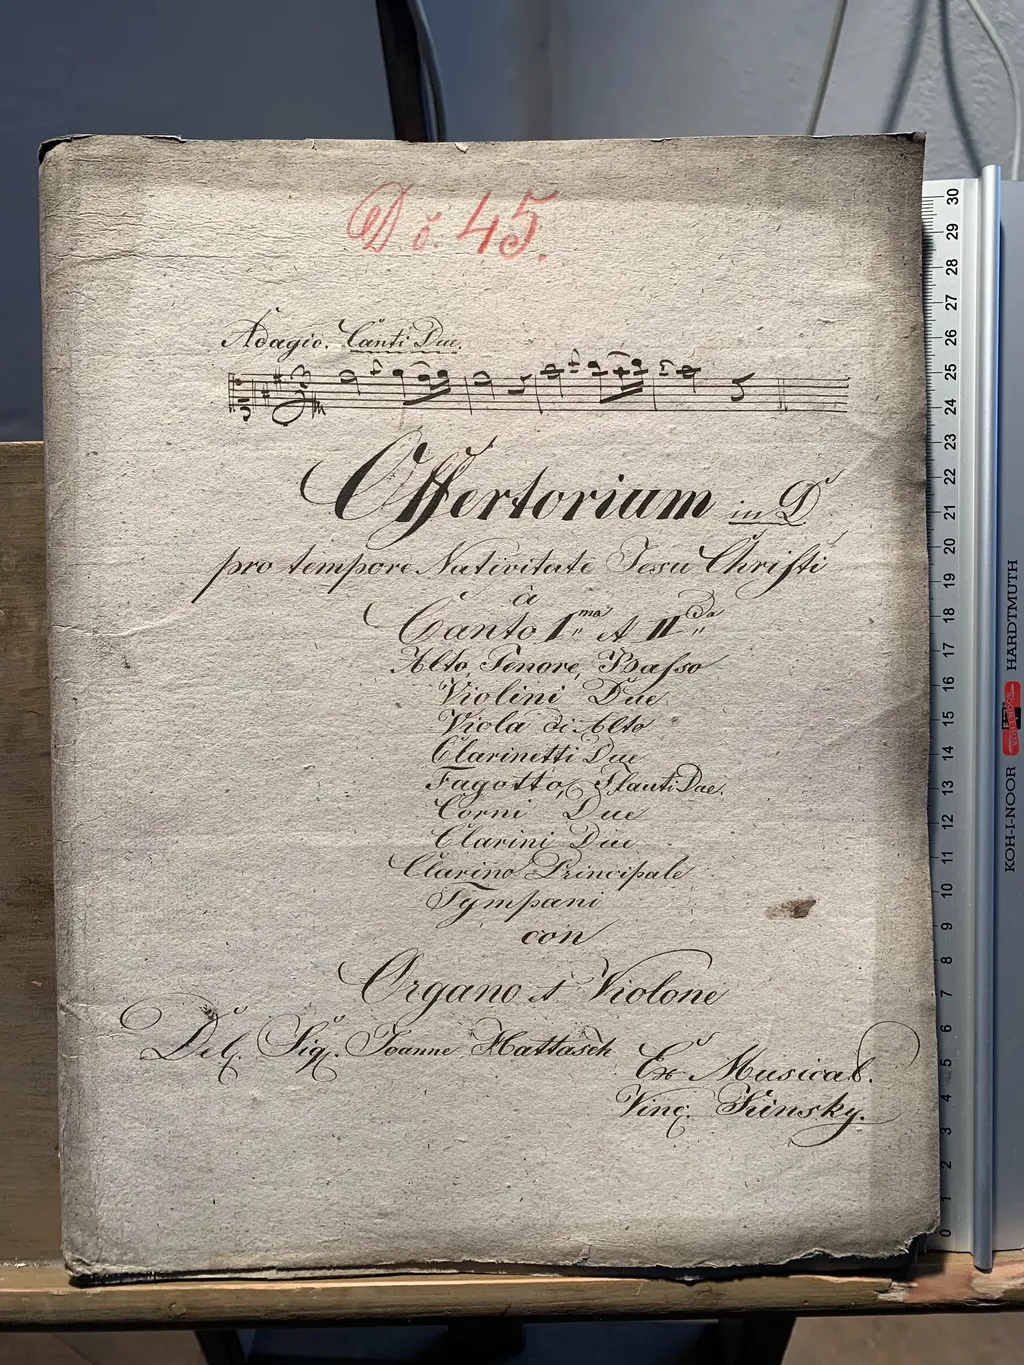 D č. 45.
Adagio. Canti Due.
Offertorium in D
pro tempore Nativitate Jesu Christi
à
Canto I ma et II da
Alto, Tenore, Basso
Violini Due
Viola di Alto
Clarinetti Due
Fagotto, Flauti Due.
Corni Due
Clarini Due
Clarino Principale
Tympani
con
Organo et Violone
Del. Sig. Joanne Hattasch
Ex Musical.
Vinc. Finsky.
30
29
28
27
26
25
24
23
22
21
20
19
18
17
16
15
14
13
12
11
10
9
8
7
6
5
4
3
2
1
0
KOH-I-NOOR HARDTMUTH